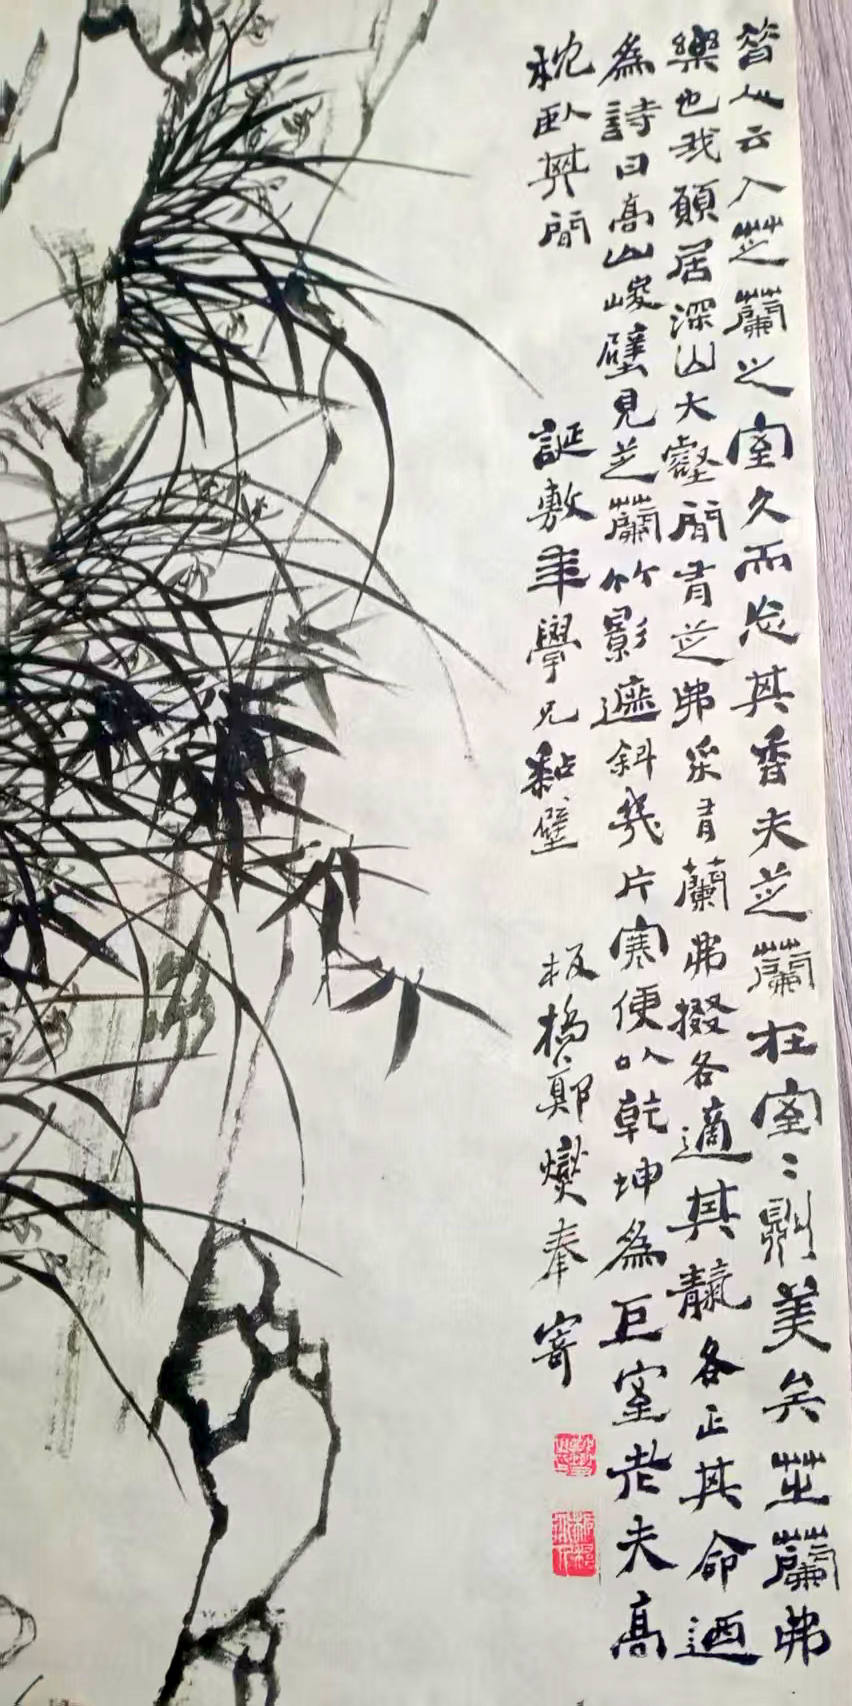 昔人云入芝蘭之室久而忘其香夫芝蘭在室〻則美矣芝蘭弗
樂也我願居深山大壑間有芝弗采有蘭弗掇各適其靝各正其命迺
爲詩曰高山峻壁見芝蘭竹影遮斜幾片寒便以乾坤爲巨室老夫高
枕臥其間
誕敷年學兄黏壁 板橋鄭燮奉寄